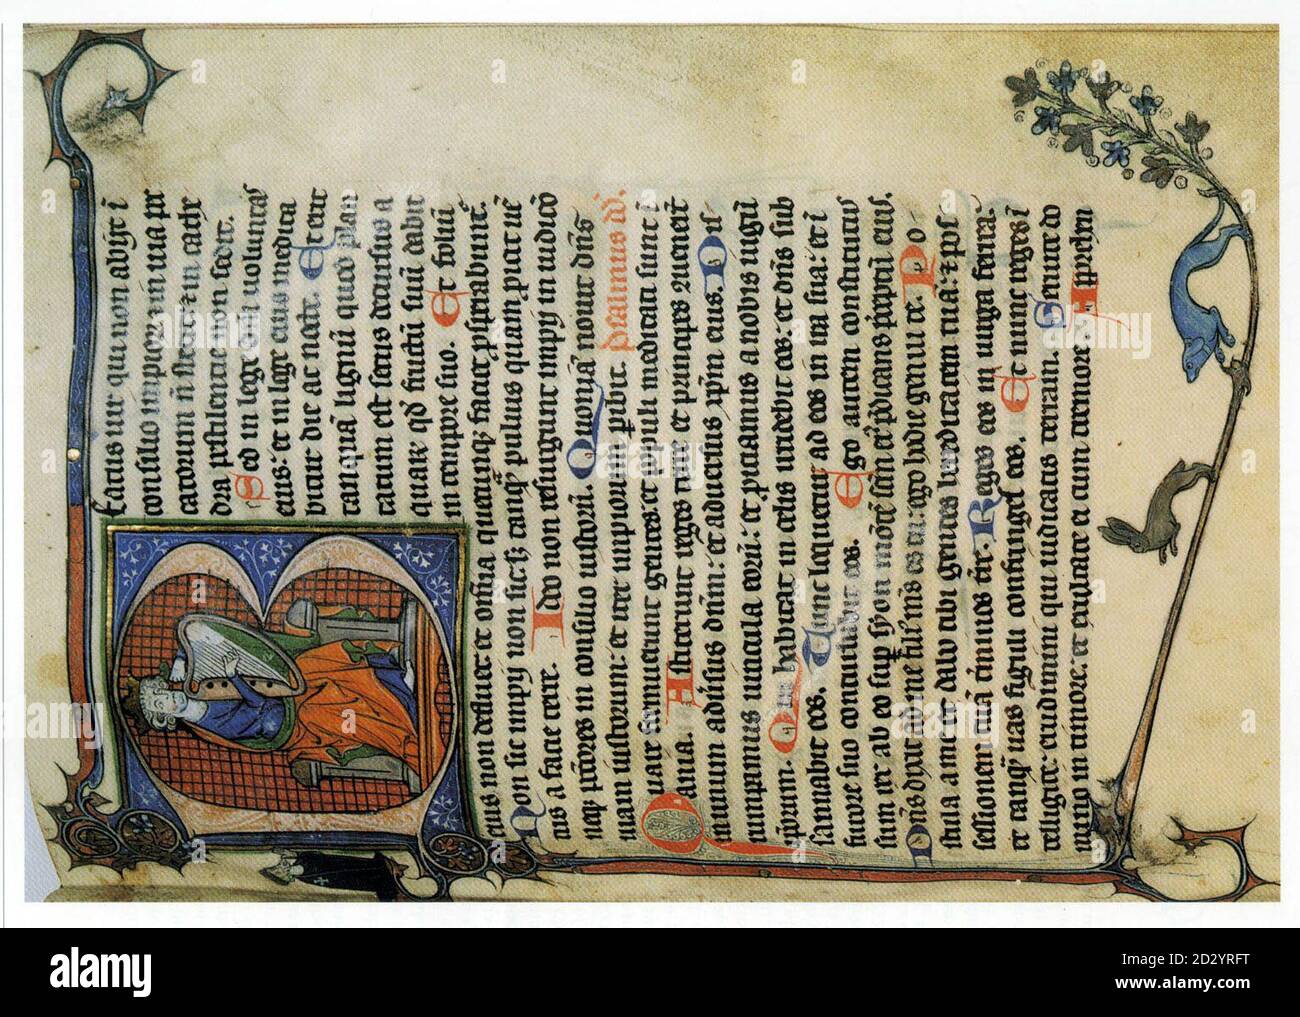 Eatus uir qui non abijt ī
consilio impior᷒ et in uia pc̄
catorum nō stetit: et in cathe
dra pestilentie non sedit.
Sed in lege dn̄i uoluntas
eius: et in lege eius medita
bitur die ac nocte. Et erit
tanquā lignū quod plan
tatum est secus decursus a
quar᷒ qd̓ fructū suū dabit
in tempore suo. Et foliū
eius non defluet: et oīnia quecunqꝫ faciet ꝓsperabunt᷒.
Non sic impij non sic sꝫ tanqꝫ puluis quem ꝓicit uē
tus a facie terre. Ideo non resurgunt impij in iudicō
neqꝫ pc̄cores in consilio iustorū. Quoniā nouit dn̄s
uiam iustorum: et iter impiorum ꝑibit. Psalmus dd̄.
Quare fremuerunt gentes: et ppl̄i meditati sunt ī
ania. Asteterunt reges terre et principes ꝯuenert̄
in unum aduersus dn̄m: et aduersus xpm̄ eius. Dis
rumpamus uincula eorū: et ꝓiciamus a nobis iugū
ip̄orum. Qui habitat in celis irridebit eos: et dn̄s sub
sannabit eos. Tunc loquetur ad eos in ira sua: et ī
furore suo conturbabit eos. Ego autem constitutus
sum rex ab eo suꝑ syon mōtē sc̄m eꝰ ꝓdicans p̄ceptū eius.
Dn̄s dixit ad me filiꝰ mꝰ es tu: ego hodie genui te. Po-
stula a me et dabo tibi gentes hereditatem tuā: et poss
essionem tuā t̄minos t̄re. Reges eos in uirga ferrea:
et tanqꝫ uas figuli confringes eos. Et nunc reges ī
telligite: erudimini qui iudicatis terram. Seruite do
mino in timore: et exultate ei cum tremore. Apprehn
alamy
Image ID: 2D2YRFT
www.alamy.com